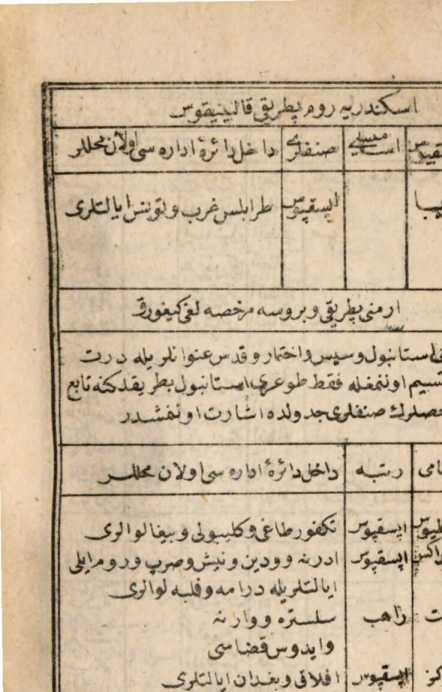 اسكندريه روم پطريقى قالينيقوس
صنفلرى داخل دائرۀ اداره سى اولان محللر
اپسقپوس طرابلس غرب و تونس ايالتلرى
ارمنى پطريقى و بروسه مرخصه لغى كيفورق
استانبول و سيس و اختمار و قدس عنوانلريله درت
تقسيم اولنمغله فقط طوغرى استانبول بطريقلكنه تابع
صنفلرى جدولده اشارت اولنمشدر
رتبه داخل دائرۀ اداره سى اولان محللر
اپسقپوس تكفور طاغى و كليبولى و بيغا لوالرى
اپسقپوس ادرنه و ودين و نيش و صرب و روم ايلى
ايالتلريله درامه و فلبه لوالرى
راهب سلستره و وارنه
و ايدوس قضاسى
اپسقپوس افلاق و بغدان ايالتلرى